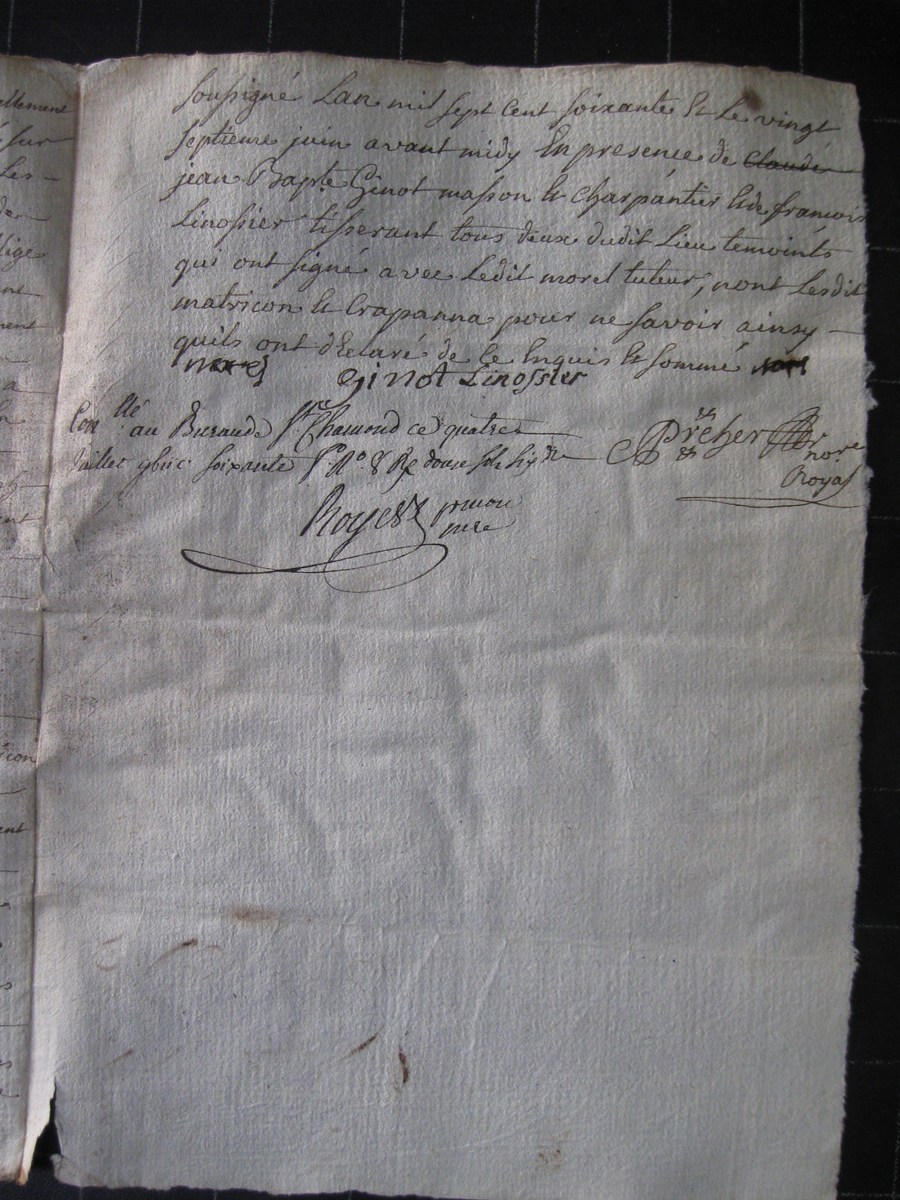 ellement
sur
Les -
lige
ment
a
icon
ent
soussigné Lan mil sept cent soixante & le vingt
septieme juin avant midy En presence de claude
jean Bapte Ginot masson & charpantier & de francois
Linossier tisserant tous deux dudit Lieu temoints
qui ont signé avec Ledit morel tuteur, nont Lesdit
matricon & Crapanna pour ne savoir ainsy -
quils ont déclaré de ce Enquis & sommé
morel Ginot Linossier
Conllé au Bureau de St Chamond ce quatre
Juillet soixante Rx douze sols six
Royer
Royal